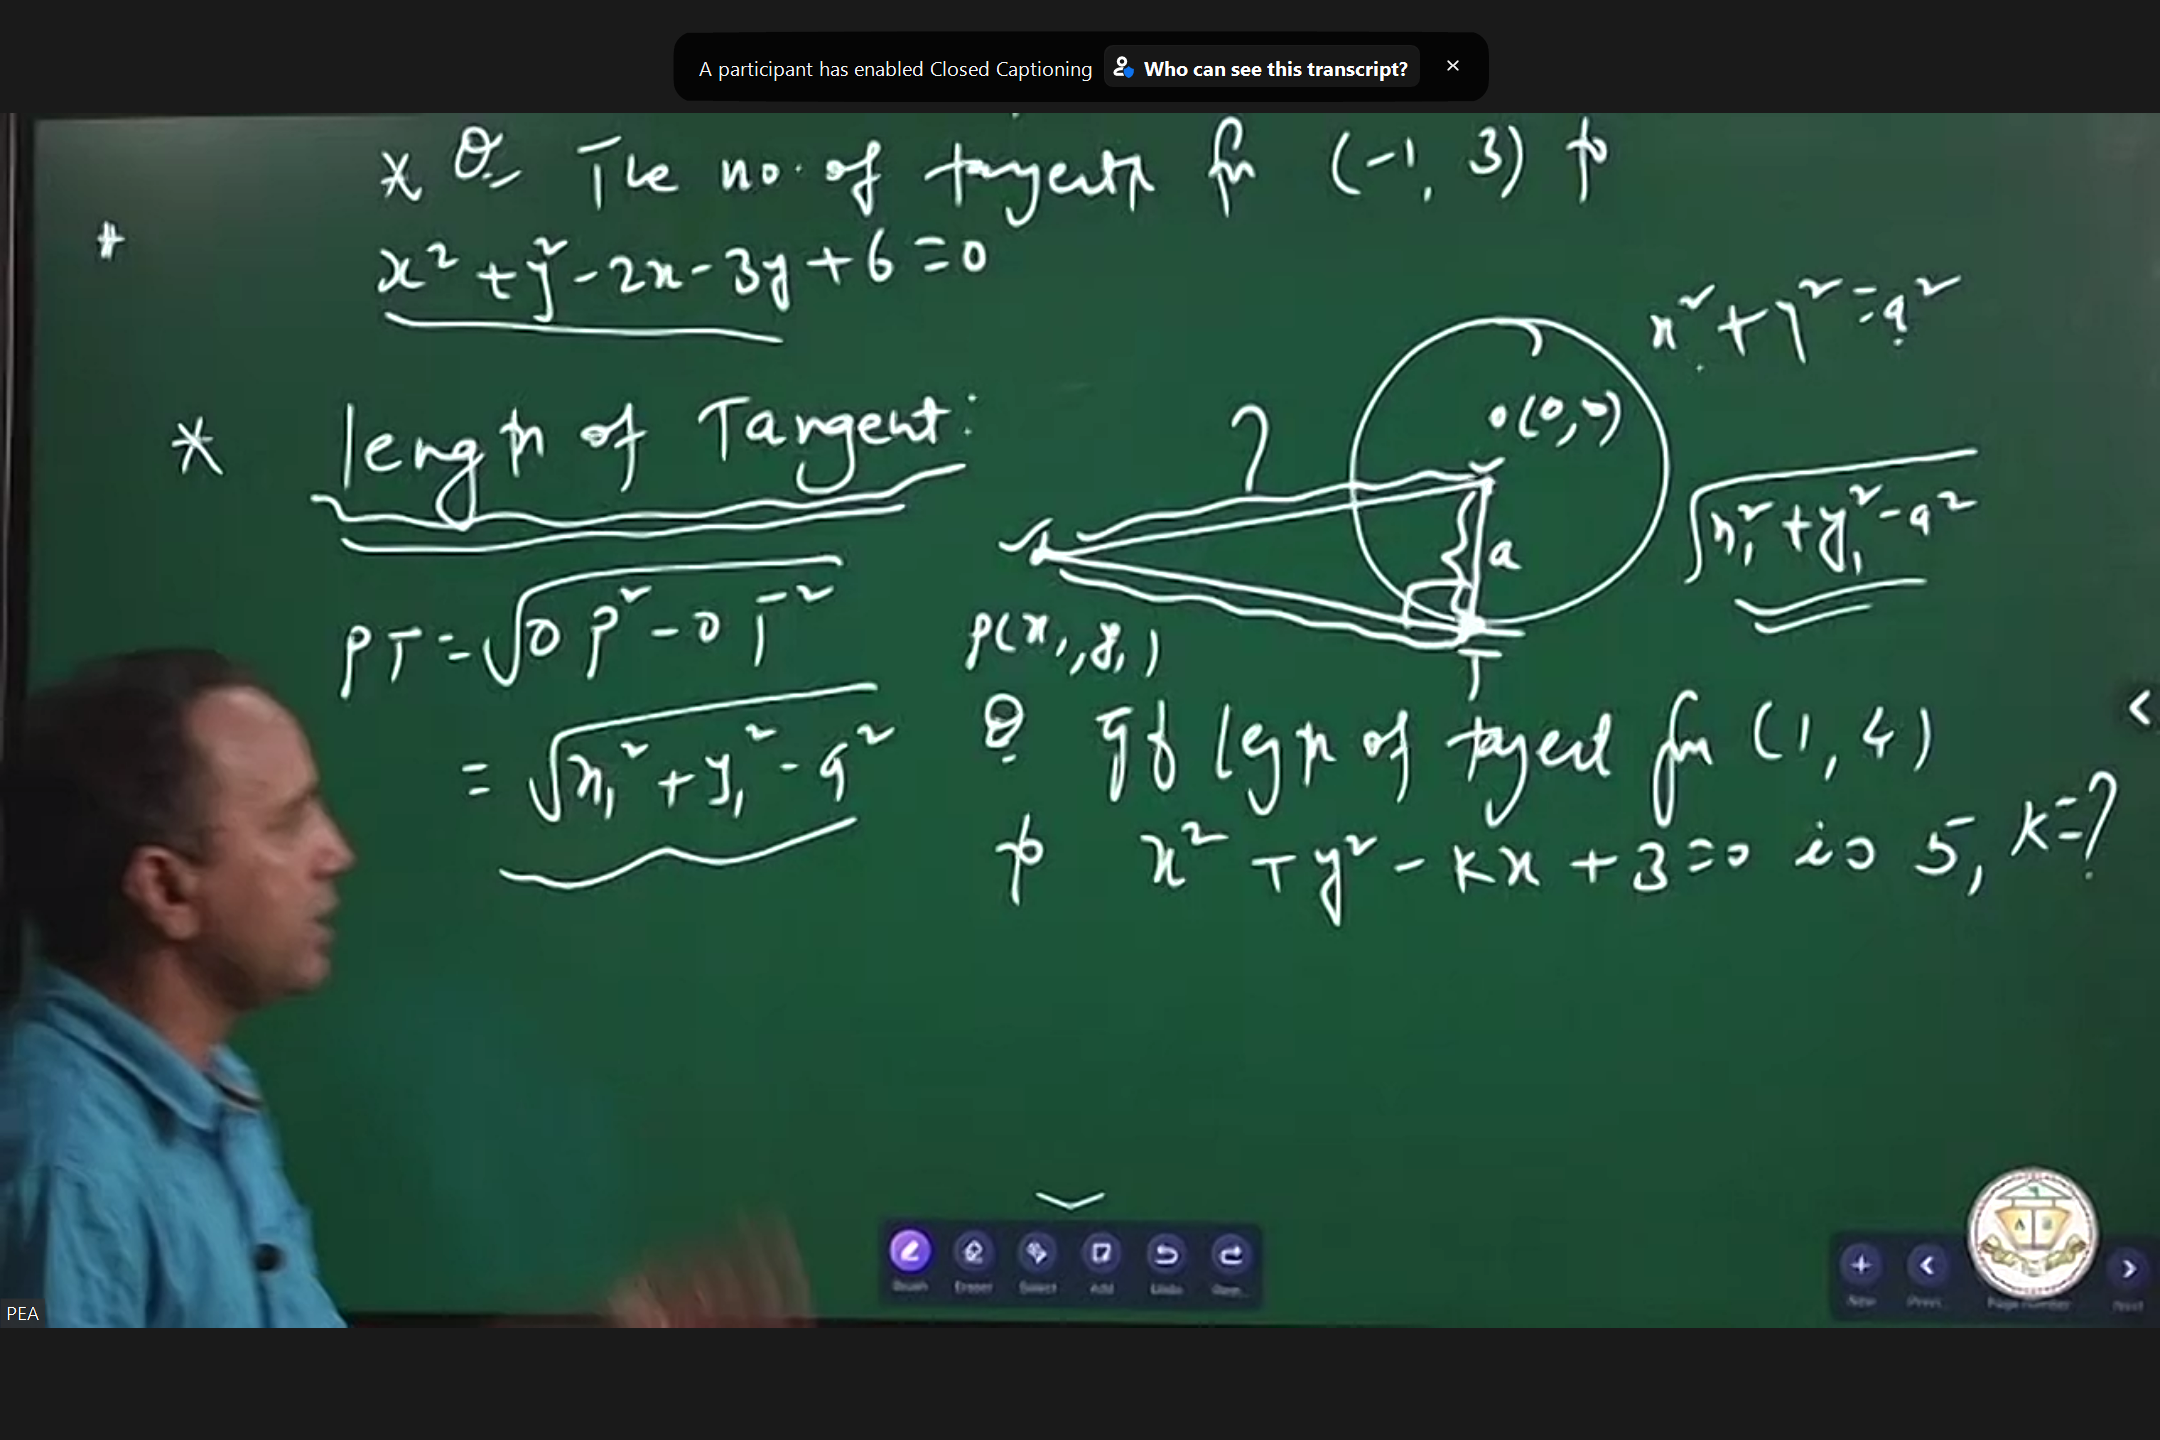 A participant has enabled Closed Captioning Who can see this transcript?
* Q. The no. of tangents fm (-1, 3) to
x² + y² - 2x - 3y + 6 = 0
x² + y² = a²
* length of Tangent:
O(0,0)
?
a
√x₁² + y₁² - a²
PT = √OP² - OT²
P(x₁, y₁)
T
= √x₁² + y₁² - a²
Q. If lgth of tangent fm (1, 4)
to x² + y² - kx + 3 = 0 is 5, K = ?
Brush Eraser Select Add Undo
New Page number Next
PEA